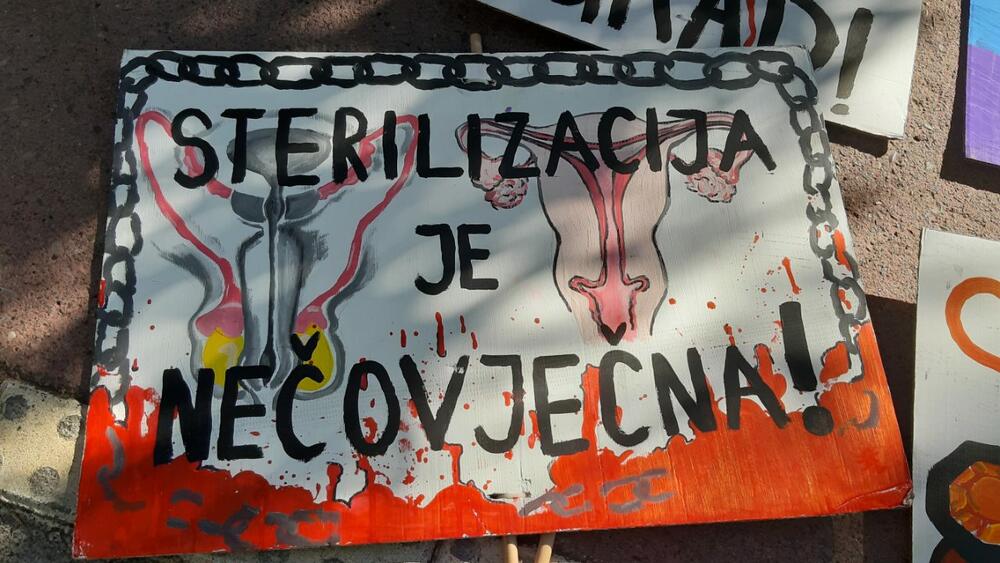 STERILIZACIJA
JE
NEČOVJEČNA!